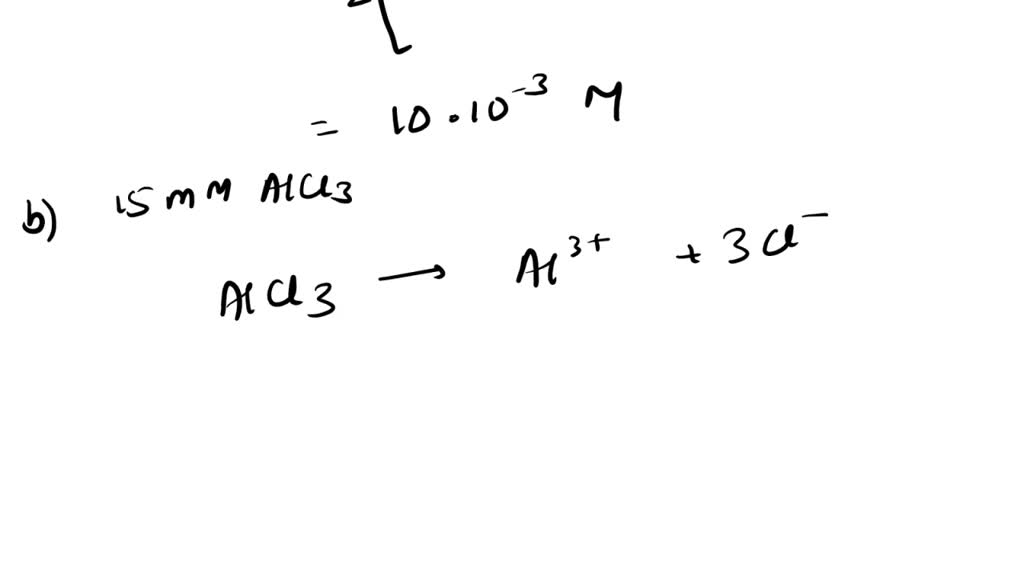 = 10 · 10⁻³ M
b) 15 mM AlCl3
AlCl3 → Al³⁺ + 3Cl⁻